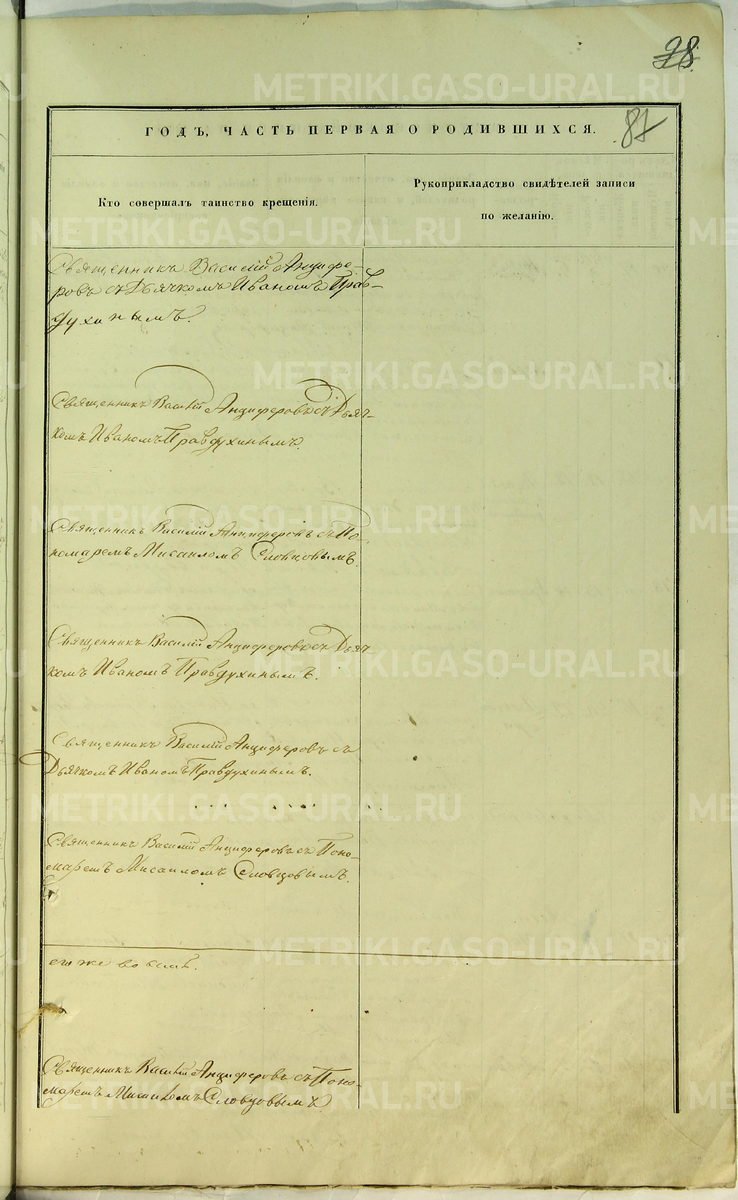 28.
87
ГОДЪ, ЧАСТЬ ПЕРВАЯ О РОДИВШИХСЯ.
Кто совершалъ таинство крещенія.
Рукоприкладство свидѣтелей записи
по желанію.
Священникъ Василій Анцифе-
ровъ съ Дьячкомъ Иваномъ Прав-
духинымъ.
Священникъ Василій Анциферовъ съ Дьяч-
комъ Иваномъ Правдухинымъ.
Священникъ Василій Анциферовъ съ По-
номаремъ Мисаиломъ Словцовымъ
Священникъ Василій Анциферовъ съ Дьяч-
комъ Иваномъ Правдухинымъ.
Священникъ Василій Анциферовъ съ
Дьячкомъ Иваномъ Правдухинымъ.
Священникъ Василій Анциферовъ съ Поно-
маремъ Мисаиломъ Словцовымъ.
Священникъ Василій Анциферовъ съ Поно-
маремъ Мисаиломъ Словцовымъ
METRIKI.GASO-URAL.RU